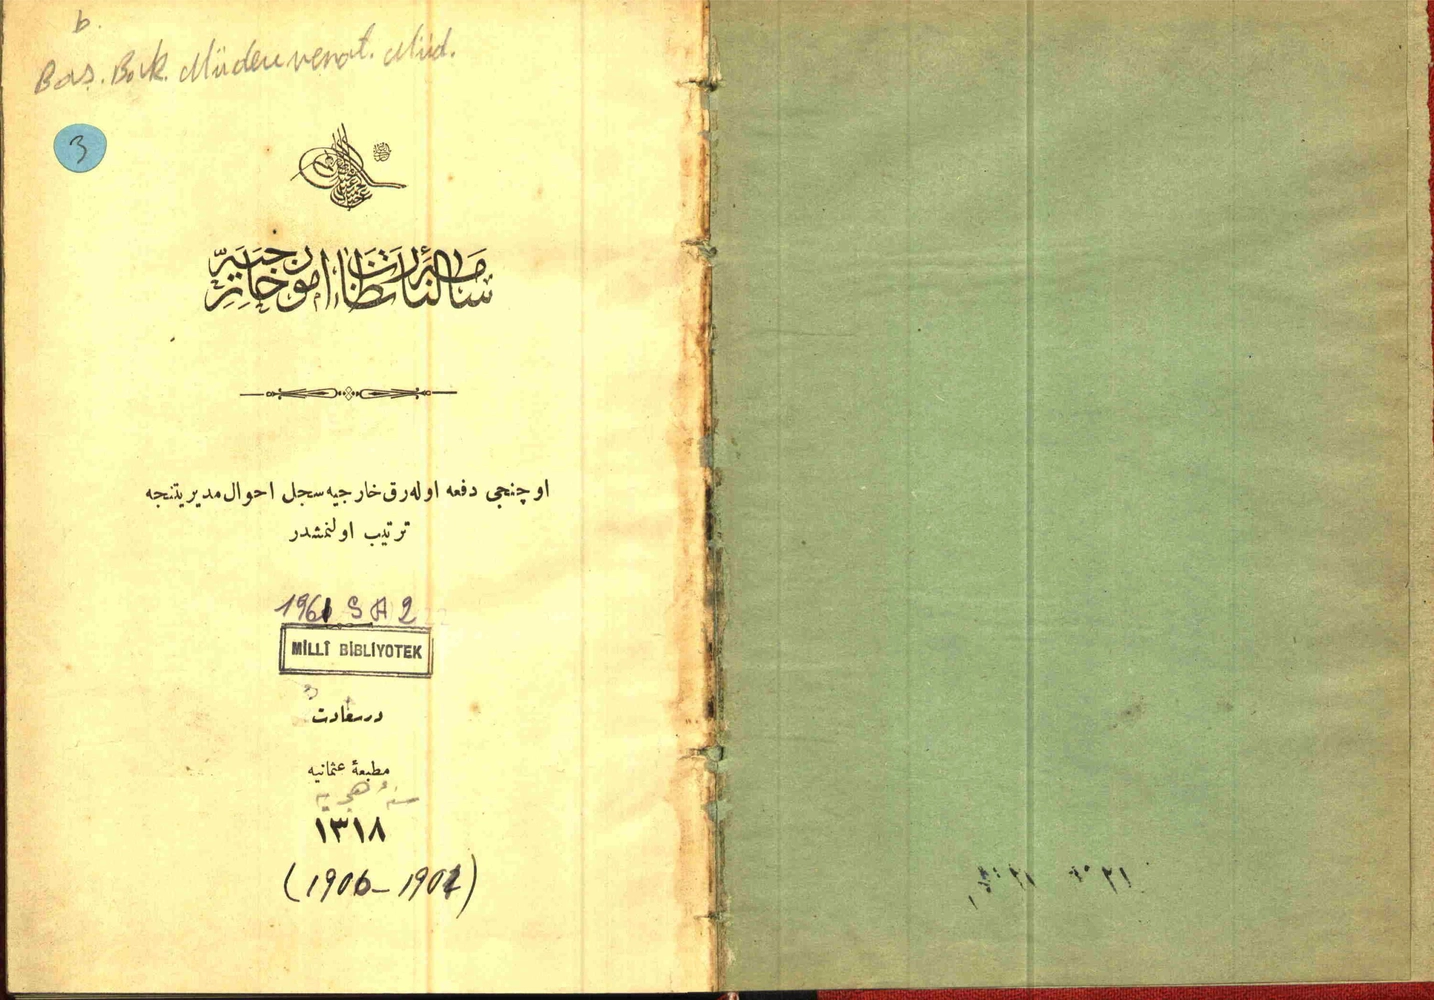 b.
Baş. Bak. Müdevvenat. Müd.
3
سالنامهٔ نظارت امور خارجیه
اوچنجی دفعه اوله‌رق خارجیه سجل احوال مدیریتنجه
ترتیب اولنمشدر
1961 SA 2
MİLLÎ BİBLİYOTEK
درسعادت
مطبعهٔ عثمانیه
سنهٔ هجریه
١٣١٨